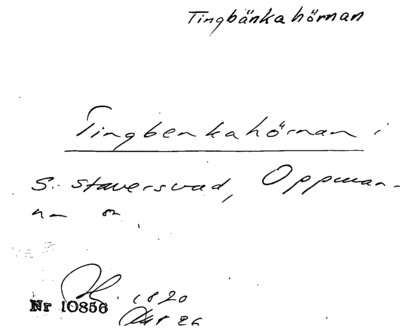 Tingbänkahörnan
Tingbenkahörnan i
S. Staversvad, Oppman-
na sn
1820
Nr 10856